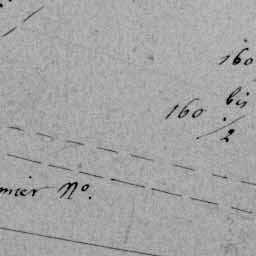 160
160 bis
/2
mier N°.